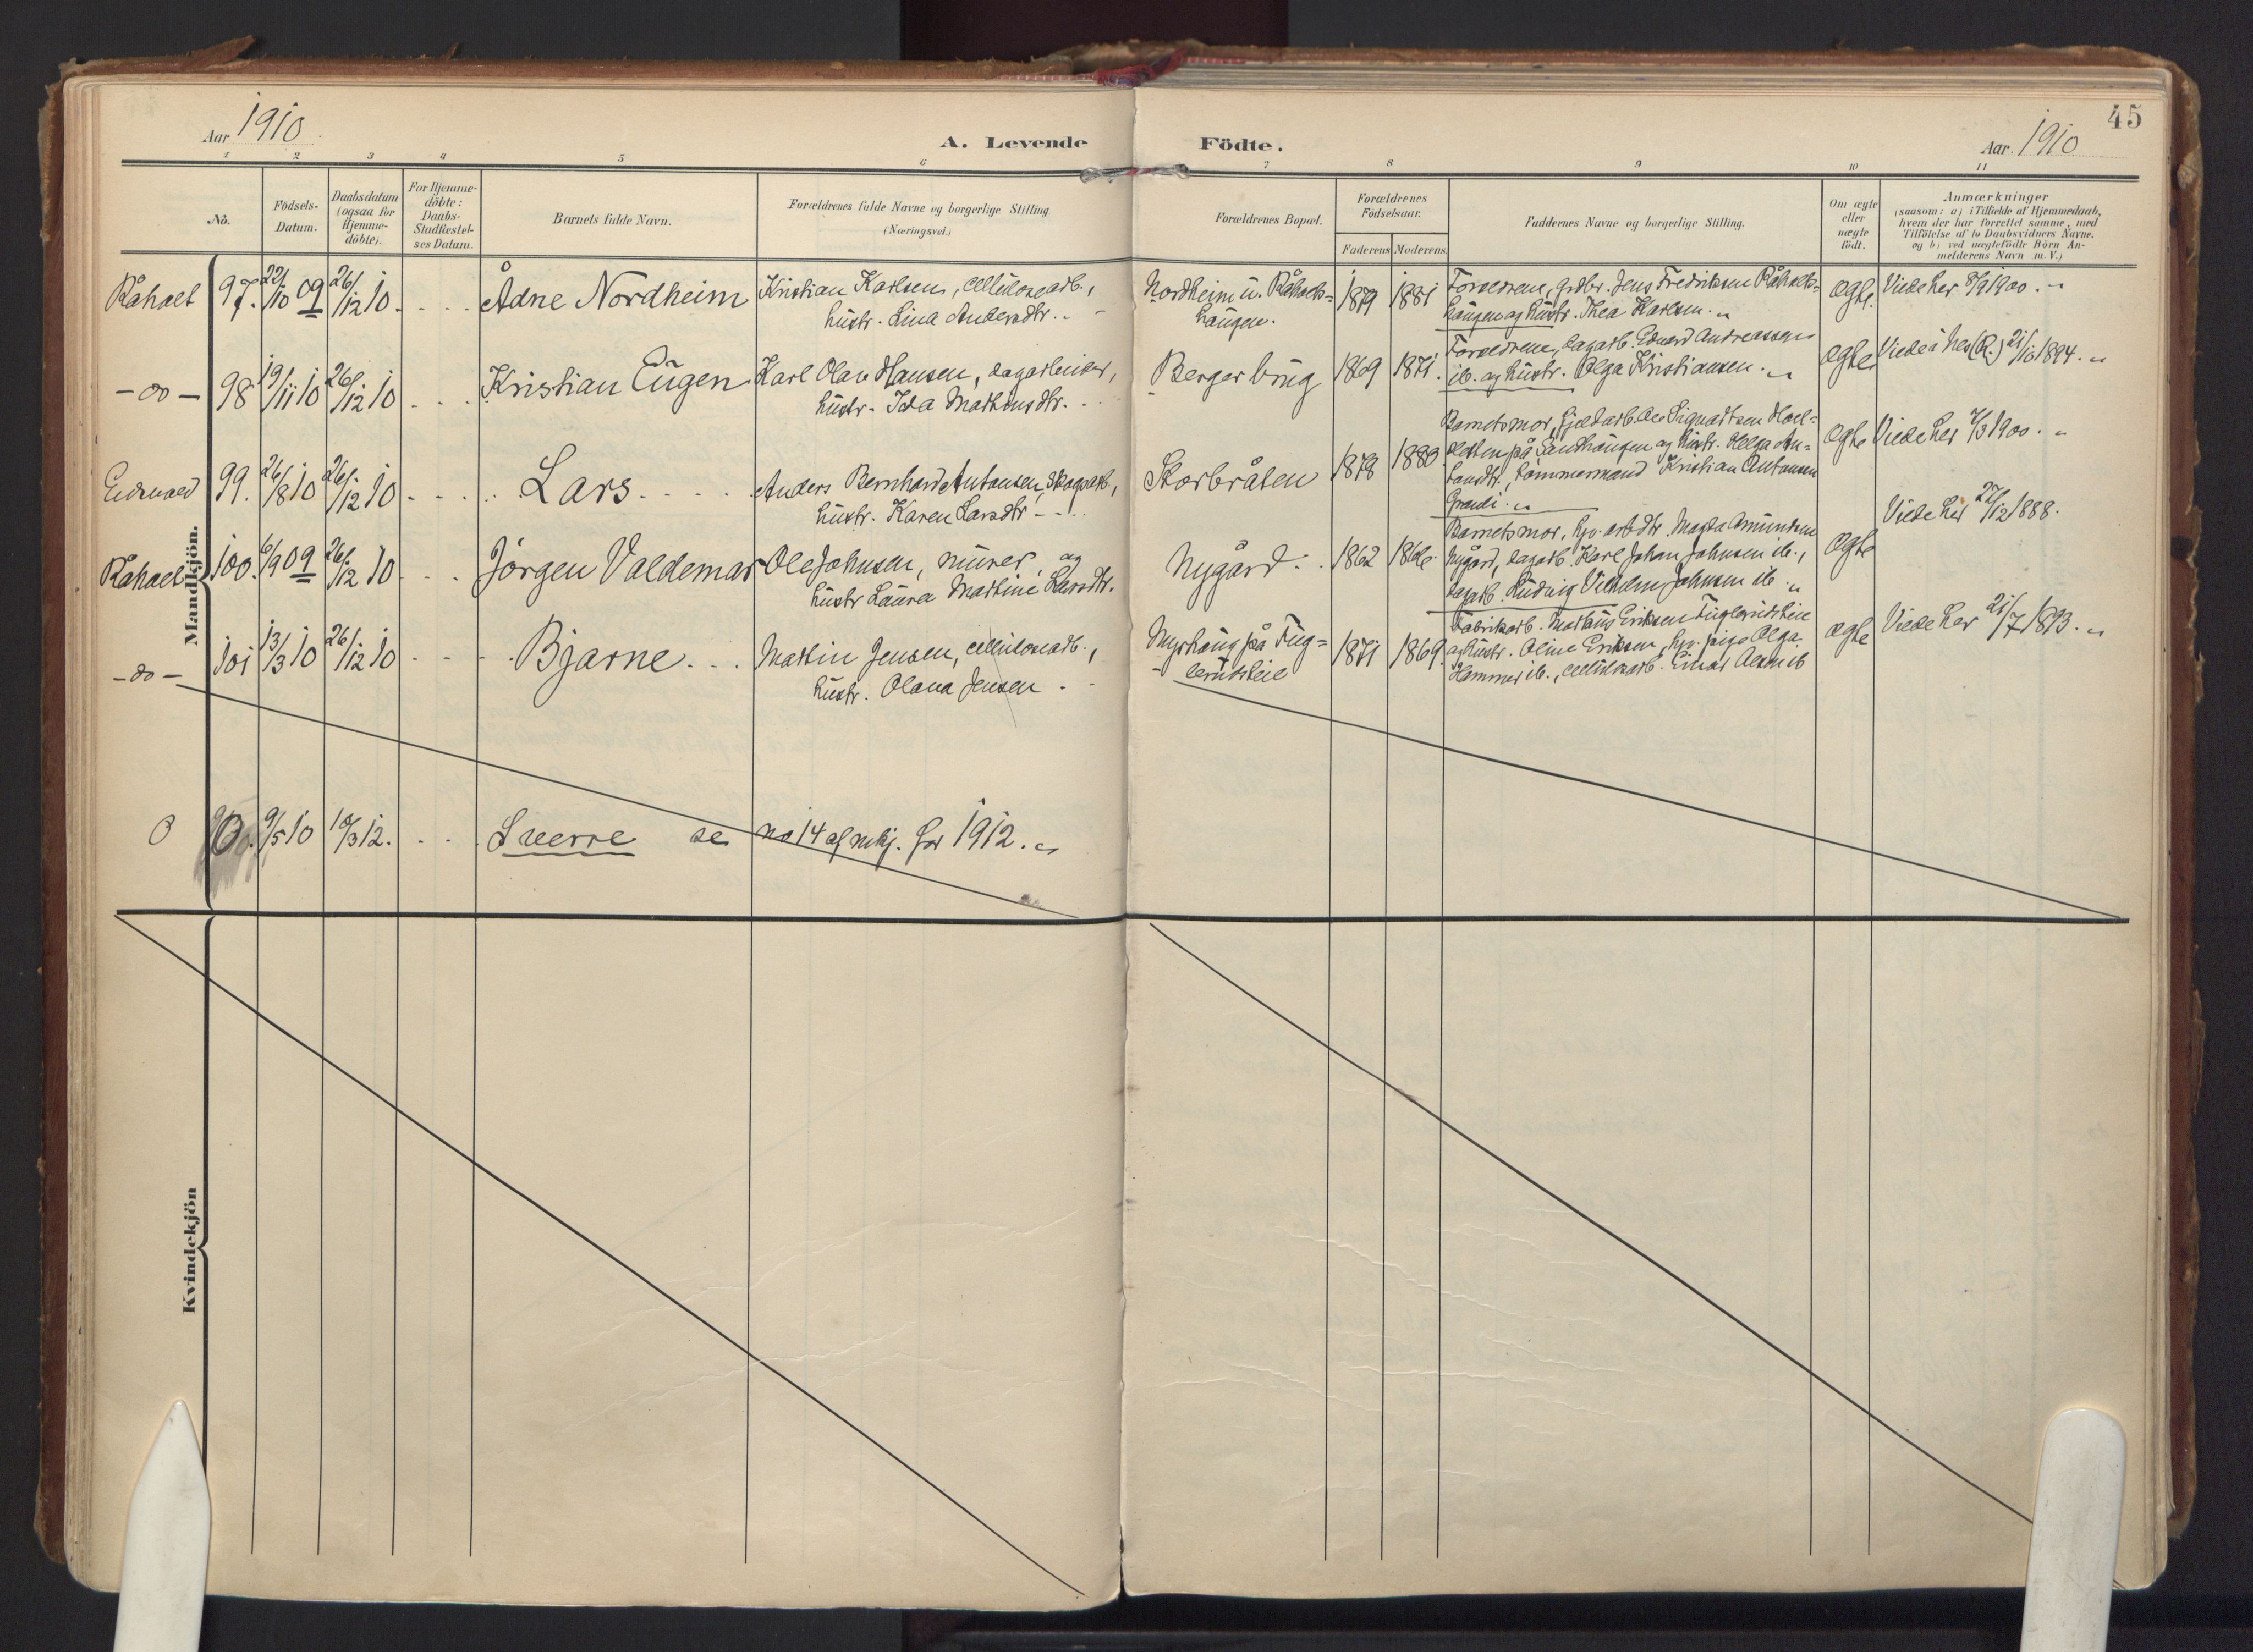 45
Aar 1910
A. Levende Födte.
Aar 1910
1 2 3 4 5 6 7 8 9 10 11
No.
Födsels-
Datum.
Daabsdatum
(ogsaa for
Hjemme-
döbte).
For Hjemme-
döbte:
Daabs-
Stadfæstel-
ses Datum.
Barnets fulde Navn.
Forældrenes fulde Navne og borgerlige Stilling
(Næringsvei.)
Forældrenes Bopæl.
Forældrenes
Födselsaar.
Faderens Moderens
Faddernes Navne og borgerlige Stilling.
Om ægte
eller
uægte
födt.
Anmærkninger
(saasom: a) i Tilfælde af Hjemmedaab,
hvem der har forrettet samme, med
Tilföielse af to Daabsvidners Navne.
og b) ved uægtefödte Börn An-
melderens Navn m. V.)
Mandkjön.
Råholt 97. 22/10 09 26/12 10. Ådne Nordheim
Kristian Karlsen, cellulosearb.,
hustr. Lina Andersdtr.
Nordheim u. Råholts=
haugen.
1879 1881
Forældrene, grdbr. Jens Fredriksen Råholts=
haugen og hustr. Thea Karlsen.
ægte. Viede her 8/9 1900.
- do - 98 19/11 10 26/12 10 Kristian Eugen
Karl Olav Hansen, dagarbeider,
hustr. Ida Mathinsdtr.
Berger brug 1869 1871.
Forældrene, dagarb. Edvard Andreassen
ib. og hustr. Olga Kristiansen.
ægte Viede i Nes (R.) 21/10 1894.
Eidsvold 99. 26/8 10 26/12 10 Lars
Anders Bernhard Antonsen, skogarb.,
hustr. Karen Larsdtr
Storbråten 1878 1880
Barnets mor,
på Sandhaugen og hustr. Helga An=
tonsdtr., tømmermand Kristian Antonsen
ægte Viede her 1900.
Råholt 100. 6/9 09 26/12 10 Jörgen Valdemar
Ole Johnsen, murer, og
hustr Laura Martine Larsdtr.
Nygård 1862 1866
Barnets mor, hjv. arb dtr. Magda Amundsen
Nygård, dagarb. Karl Johan Johnsen ib.,
dagarb. Ludvig Vilhelm Johnsen ib.
ægte Viede her 27/12 1888.
- do - 101 13/3 10 26/12 10 Bjarne
Martin Jensen, cellulosearb.,
hustr. Olava Jensen.
Myrhaug på Fug=
lerudsteie
1871 1869.
Fabrikarb. Mathius Eriksen Fuglerudsteie
og hustr. Oline Eriksen, hjv. pige Olga
Hammer ib., cellulosearb. Einar Olsen ib
ægte Viede her 21/7 1893.
0 9/5 10 10/3 12. Sverre se no 14 af mkj. for 1912.
Kvindekjön